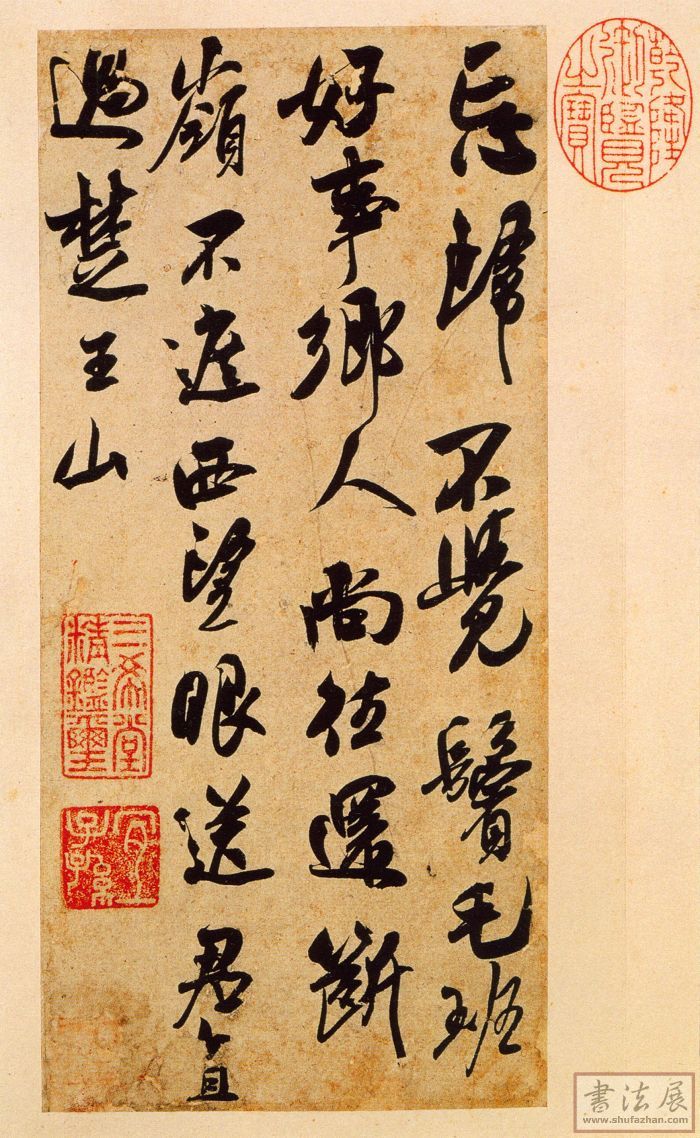 忘歸不覺鬢毛班
好事鄉人尚往還斷
嶺不遮西望眼送君直
過楚王山
乾隆
御覽
之寶
三希堂
精鑑璽
宜
子孫
書法展
www.shufazhan.com